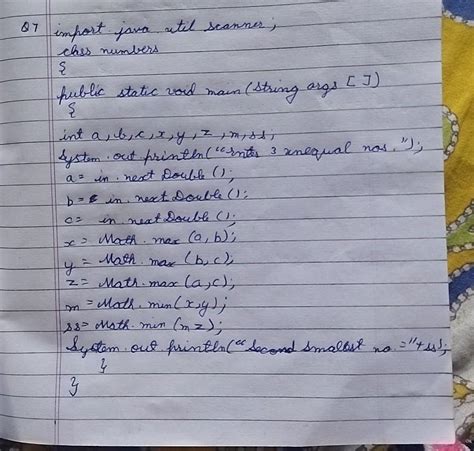 Q7 import java util scanner;
class numbers
{
public static void main(String args [])
{
int a, b, c, x, y, z, m, ss;
System.out.println("Enter 3 unequal nos.");
a= in.next Double ();
b= in.next Double ();
c= in.next Double ();
x= Math.max (a, b);
y= Math.max (b, c);
z= Math.max (a, c);
m= Math.min (x, y);
ss= Math.min (m z);
System.out.println("Second smallest no.="+ss);
}
}